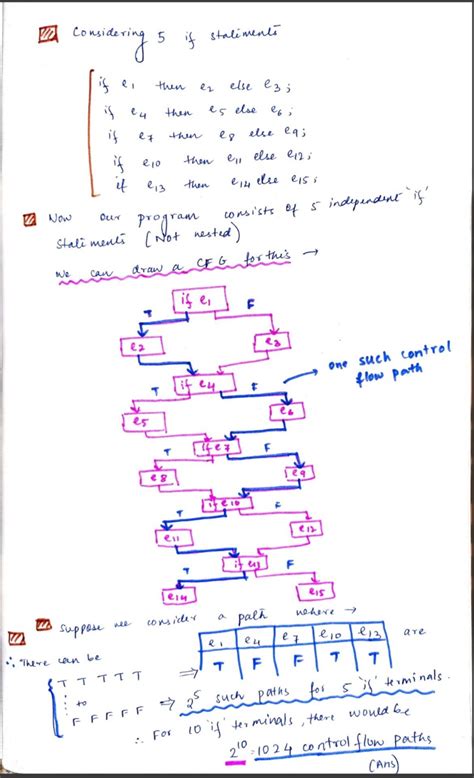 Considering 5 if statiments
if e1 then e2 else e3;
if e4 then e5 else e6;
if e7 then e8 else e9;
if e10 then e11 else e12;
if e13 then e14 else e15;
Now our program consists of 5 independent 'if'
statiments (Not nested)
We can draw a CFG for this →
if e1
T F
e2 e3
if e4
T F
one such control
flow path
e5 e6
if e7
T F
e8 e9
if e10
T F
e11 e12
if e13
T F
e14 e15
Suppose we consider a path where →
e1 e4 e7 e10 e13 are
T F F T T
∴ There can be
T T T T T
to
F F F F F ⇒ 2^5 such paths for 5 'if' terminals.
∴ For 10 'if' terminals, there would be
2^10 = 1024 control flow paths
(Ans)